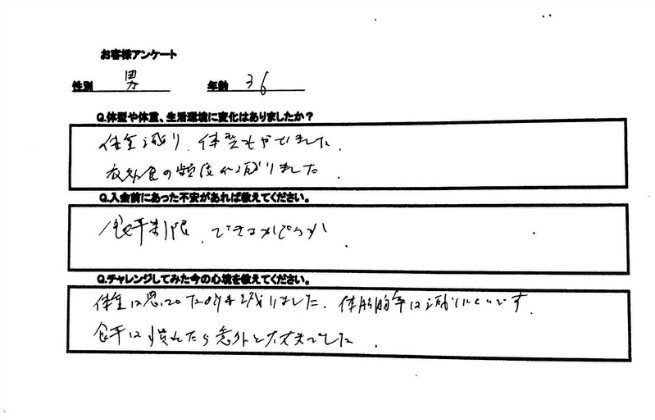 お客様アンケート
性別 男 年齢 36
Q.体型や体重、生活環境に変化はありましたか？
体重も減り、体型もかわりました。
夜外食の頻度が減りました
Q.入会前にあった不安があれば教えてください。
食事制限、できるかどうか
Q.チャレンジしてみた今の心境を教えてください。
体重は思ってた以上減りました。体脂肪率は減りにくいです
食事は慣れたら意外と大丈夫でした